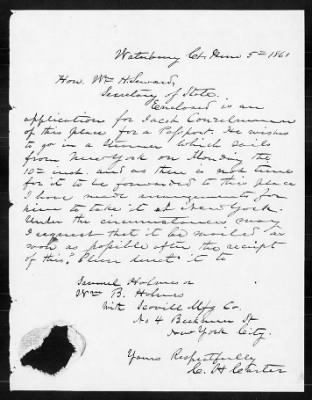 Waterbury Ct. June 5th 1861
Hon. Wm H. Seward,
Secretary of State.
Enclosed is an
application for Jacob
of this place for a Passport. He wishes
to go in a Steamer which sails
from New York on Monday the
10th inst. and as there is not time
for it to be forwarded to this place
I have made arrangements for
him to take it at New York.
Under the circumstances may
I request that it be mailed as
soon as possible after the receipt
of this. Please direct it to
Samuel Holmes or
Wm B. Holmes
with Scovill Mfg Co.
No 4 Beekman St
New York City.
Yours Respectfully
C. H. Carter